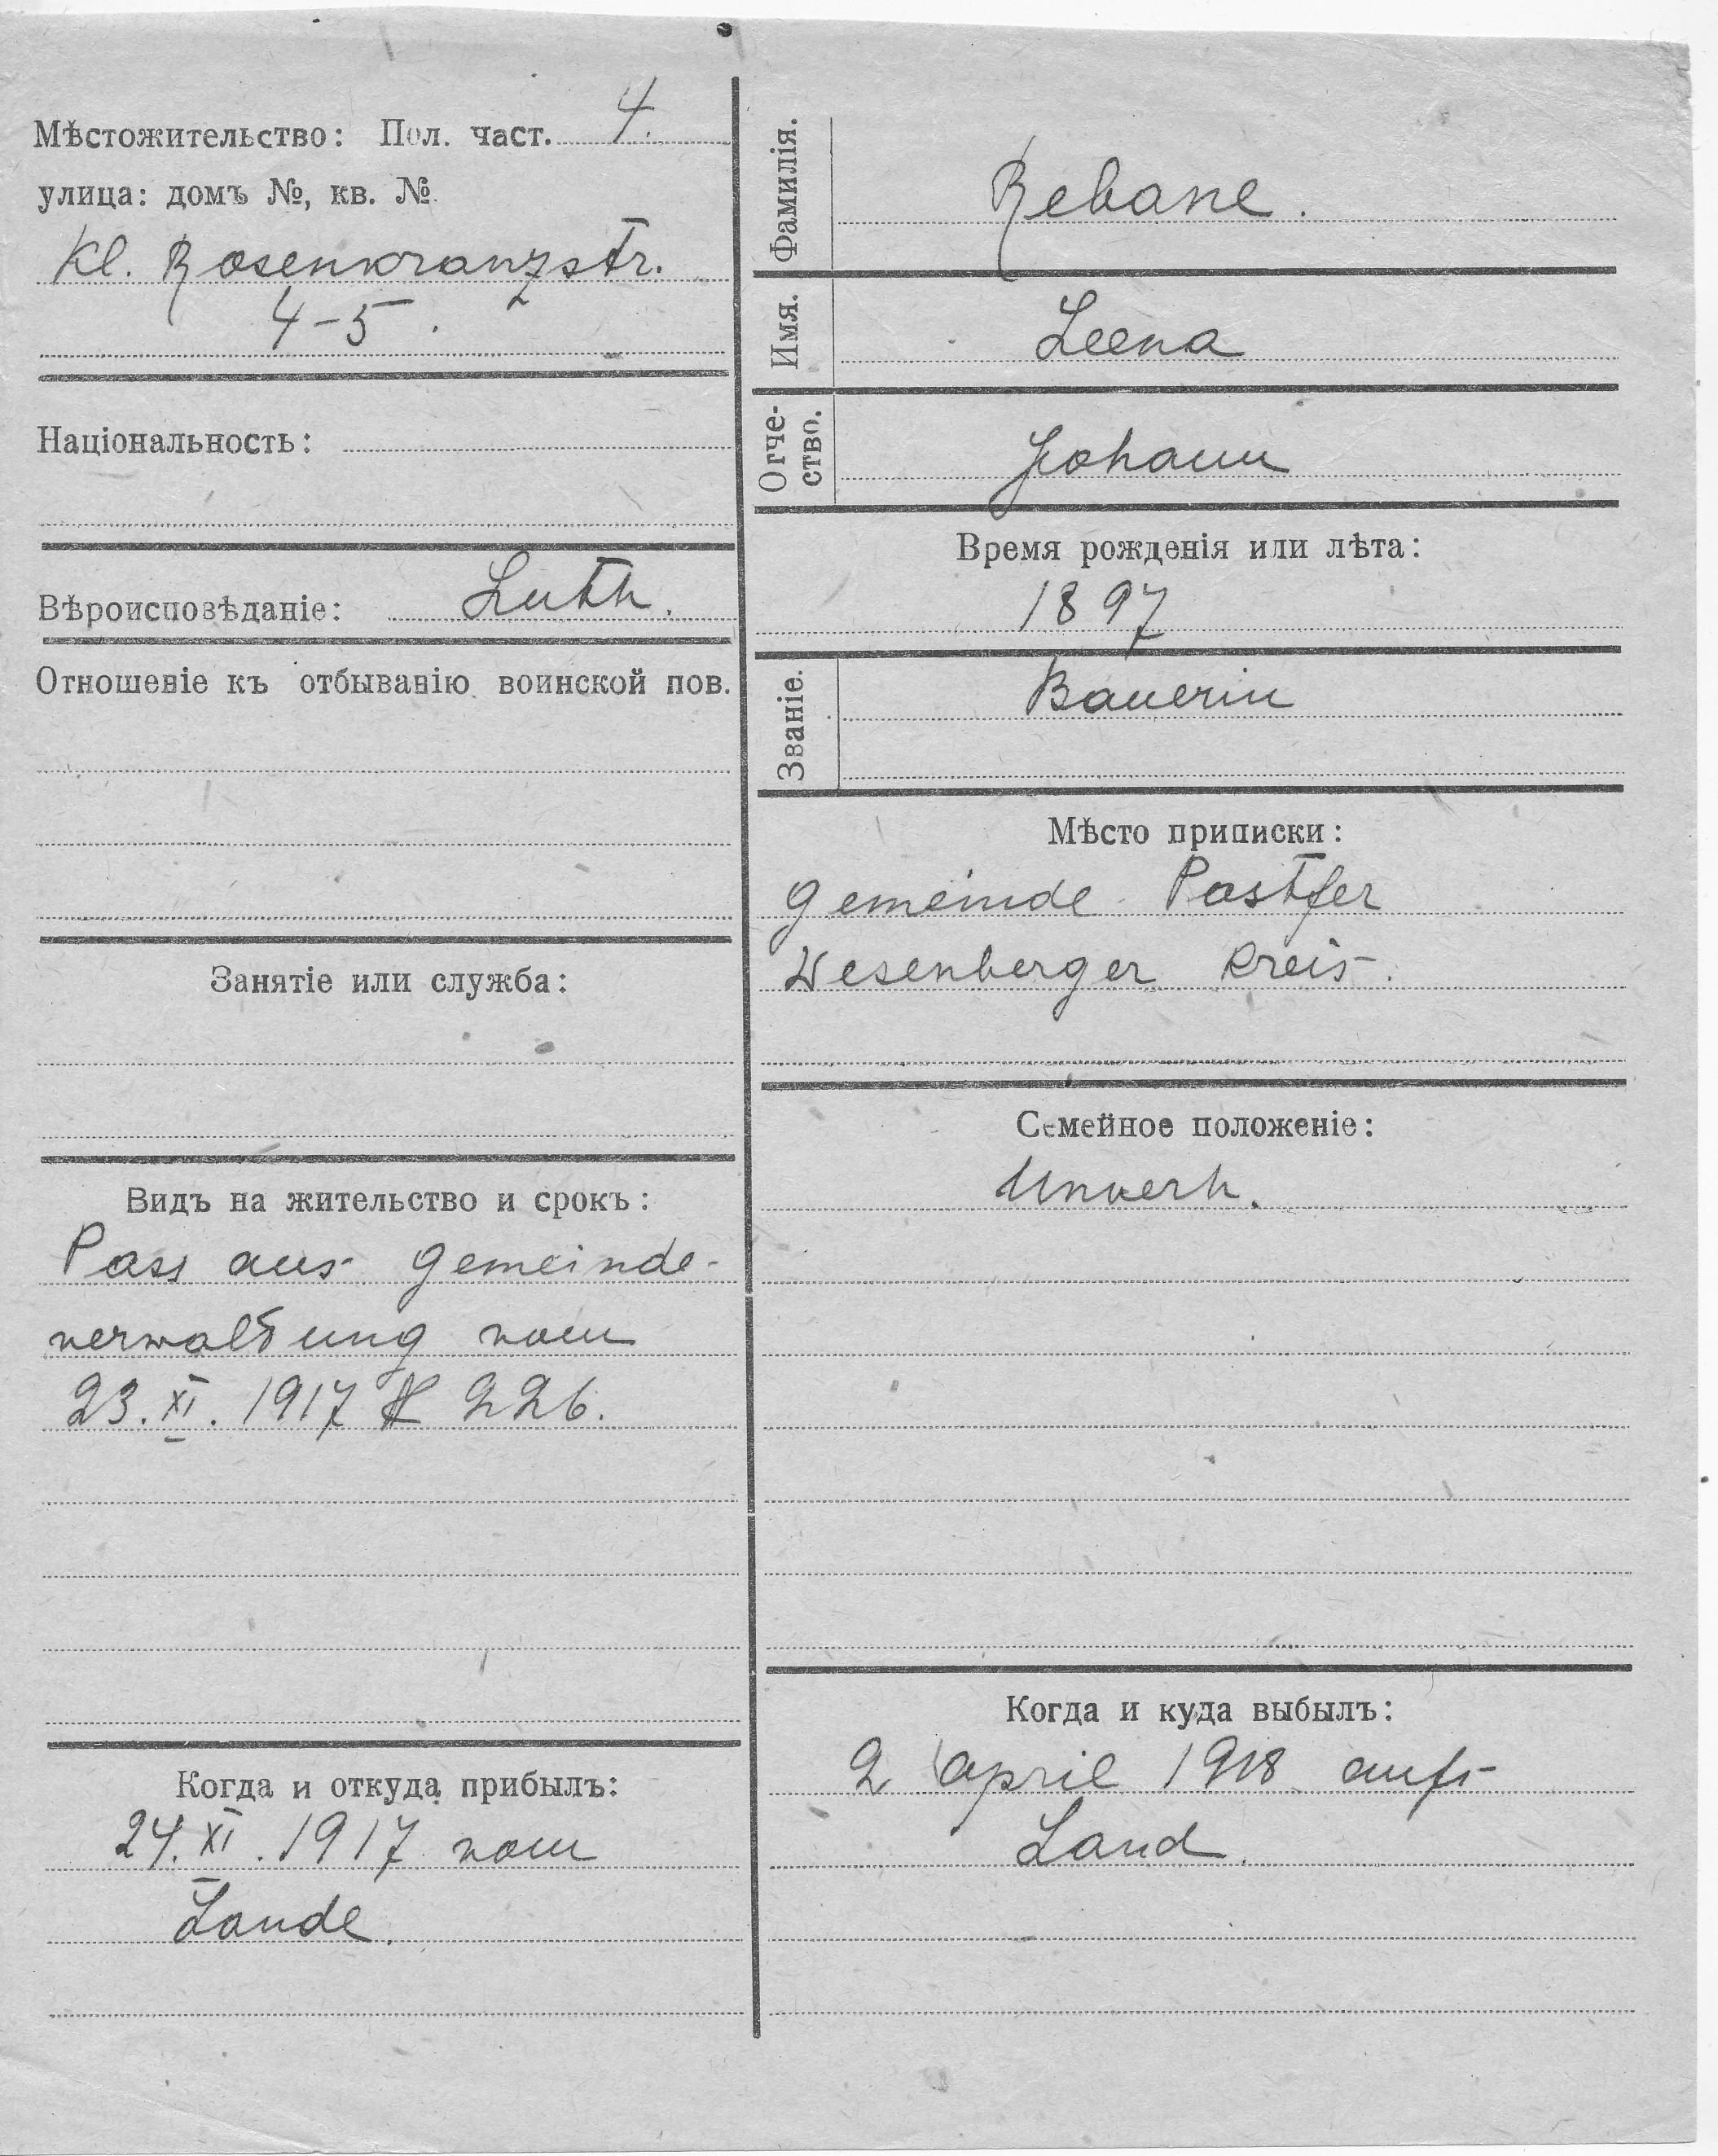 Мѣстожительство: Пол. част. 4.
улица: домъ №, кв. №
Kl. Rosenkranzstr.
4-5.
Національность:
Вѣроисповѣданіе: Luth.
Отношеніе къ отбыванію воинской пов.
Занятіе или служба:
Видъ на жительство и срокъ:
Pass aus Gemeinde-
verwaltung vom
23. XI. 1917 № 226.
Когда и откуда прибылъ:
24. XI. 1917 vom
Lande.
Фамилія. Rebane.
Имя. Leena
Отче-
ство. Johann
Время рожденія или лѣта:
1897
Званіе. Bauerin
Мѣсто приписки:
Gemeinde Pastfer
Wesenberger Kreis.
Семейное положеніе:
Unverh.
Когда и куда выбылъ:
2 April 1918 aufs
Land.